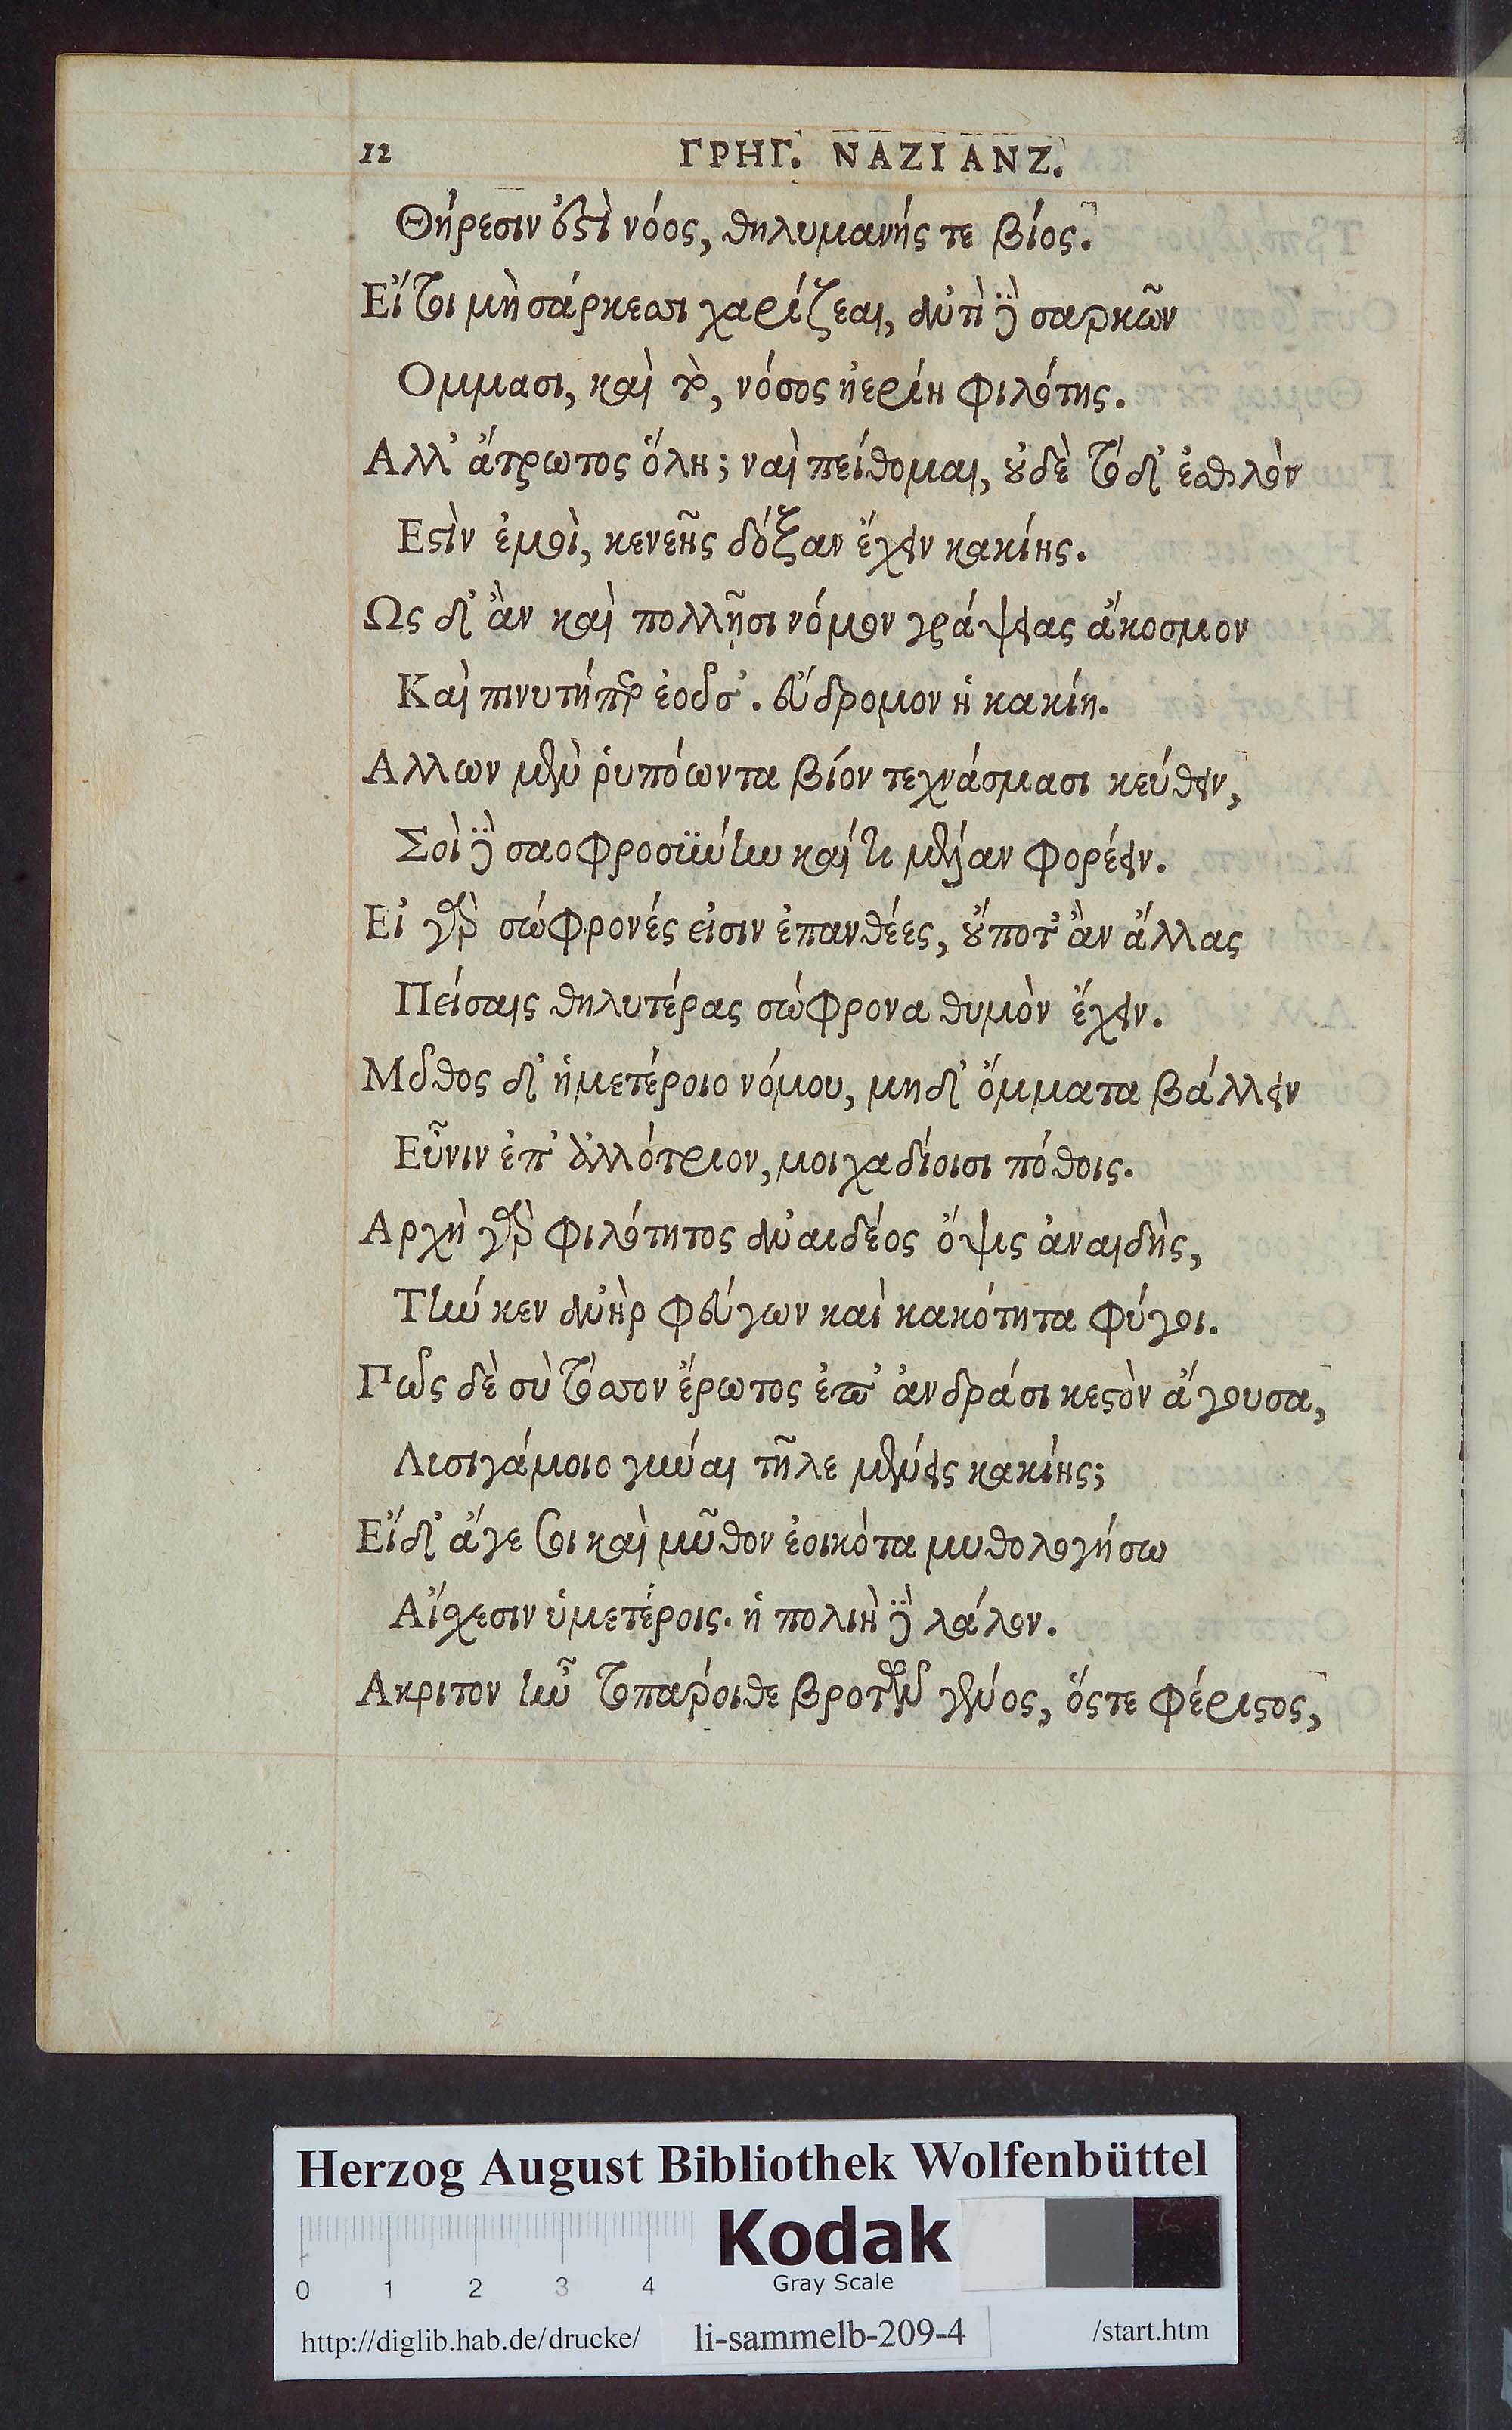 12 ΓΡΗΓ. ΝΑΖΙΑΝΖ.
Θήρεσιν ἐστὶ νόος, θηλυμανής τε βίος.
Εἴ τοι μὴ σάρκεσσι χαρίζεαι, ἀντὶ δὲ σαρκῶν
Ομμασι, καὶ τὸ, νόσος ἠερίη φιλότης.
Αλλ' ἄτρωτος ὅλη; ναὶ πείθομαι, οὐδὲ τόδ' ἐσθλὸν
Εστὶν ἐμοὶ, κενεῆς δόξαν ἔχειν κακίης.
Ως δ' ἂν καὶ πολλῇσι νόμον γράψειας ἄκοσμον
Καὶ πινυτή περ ἐοῦσ'. εὔδρομον ἡ κακίη.
Αλλων μὲν ῥυπόωντα βίον τεχνάσμασι κεύθειν,
Σοὶ δὲ σαοφροσύνην καί τι μέλαν φορέειν.
Εἰ γὰρ σώφρονές εἰσιν ἐπανθέες, οὔποτ' ἂν ἄλλας
Πείσαις θηλυτέρας σώφρονα θυμὸν ἔχειν.
Μοῦθος δ' ἡμετέροιο νόμου, μηδ' ὄμματα βάλλειν
Εὖνιν ἐπ' ἀλλότριον, μοιχαδίοισι πόθοις.
Αρχὴ γὰρ φιλότητος ἀναιδέος ὄψις ἀναιδὴς,
Τήν κεν ἀνὴρ φεύγων καὶ κακότητα φύγοι.
Πῶς δὲ σὺ τόσσον ἔρωτος ἐπ' ἀνδράσι κεστὸν ἄγουσα,
Λισιγάμοιο γύναι τῆλε μένεις κακίης;
Εἴδ' ἄγε τοι καὶ μῦθον ἐοικότα μυθολογήσω
Αἴσχεσιν ὑμετέροις. ἡ πολιὴ δὲ λάλον.
Ακριτον ἦν τοπάροιθε βροτῶν γένος, ὅστε φέριστος,
Herzog August Bibliothek Wolfenbüttel
Kodak
Gray Scale
0 1 2 3 4
http://diglib.hab.de/drucke/ li-sammelb-209-4 /start.htm